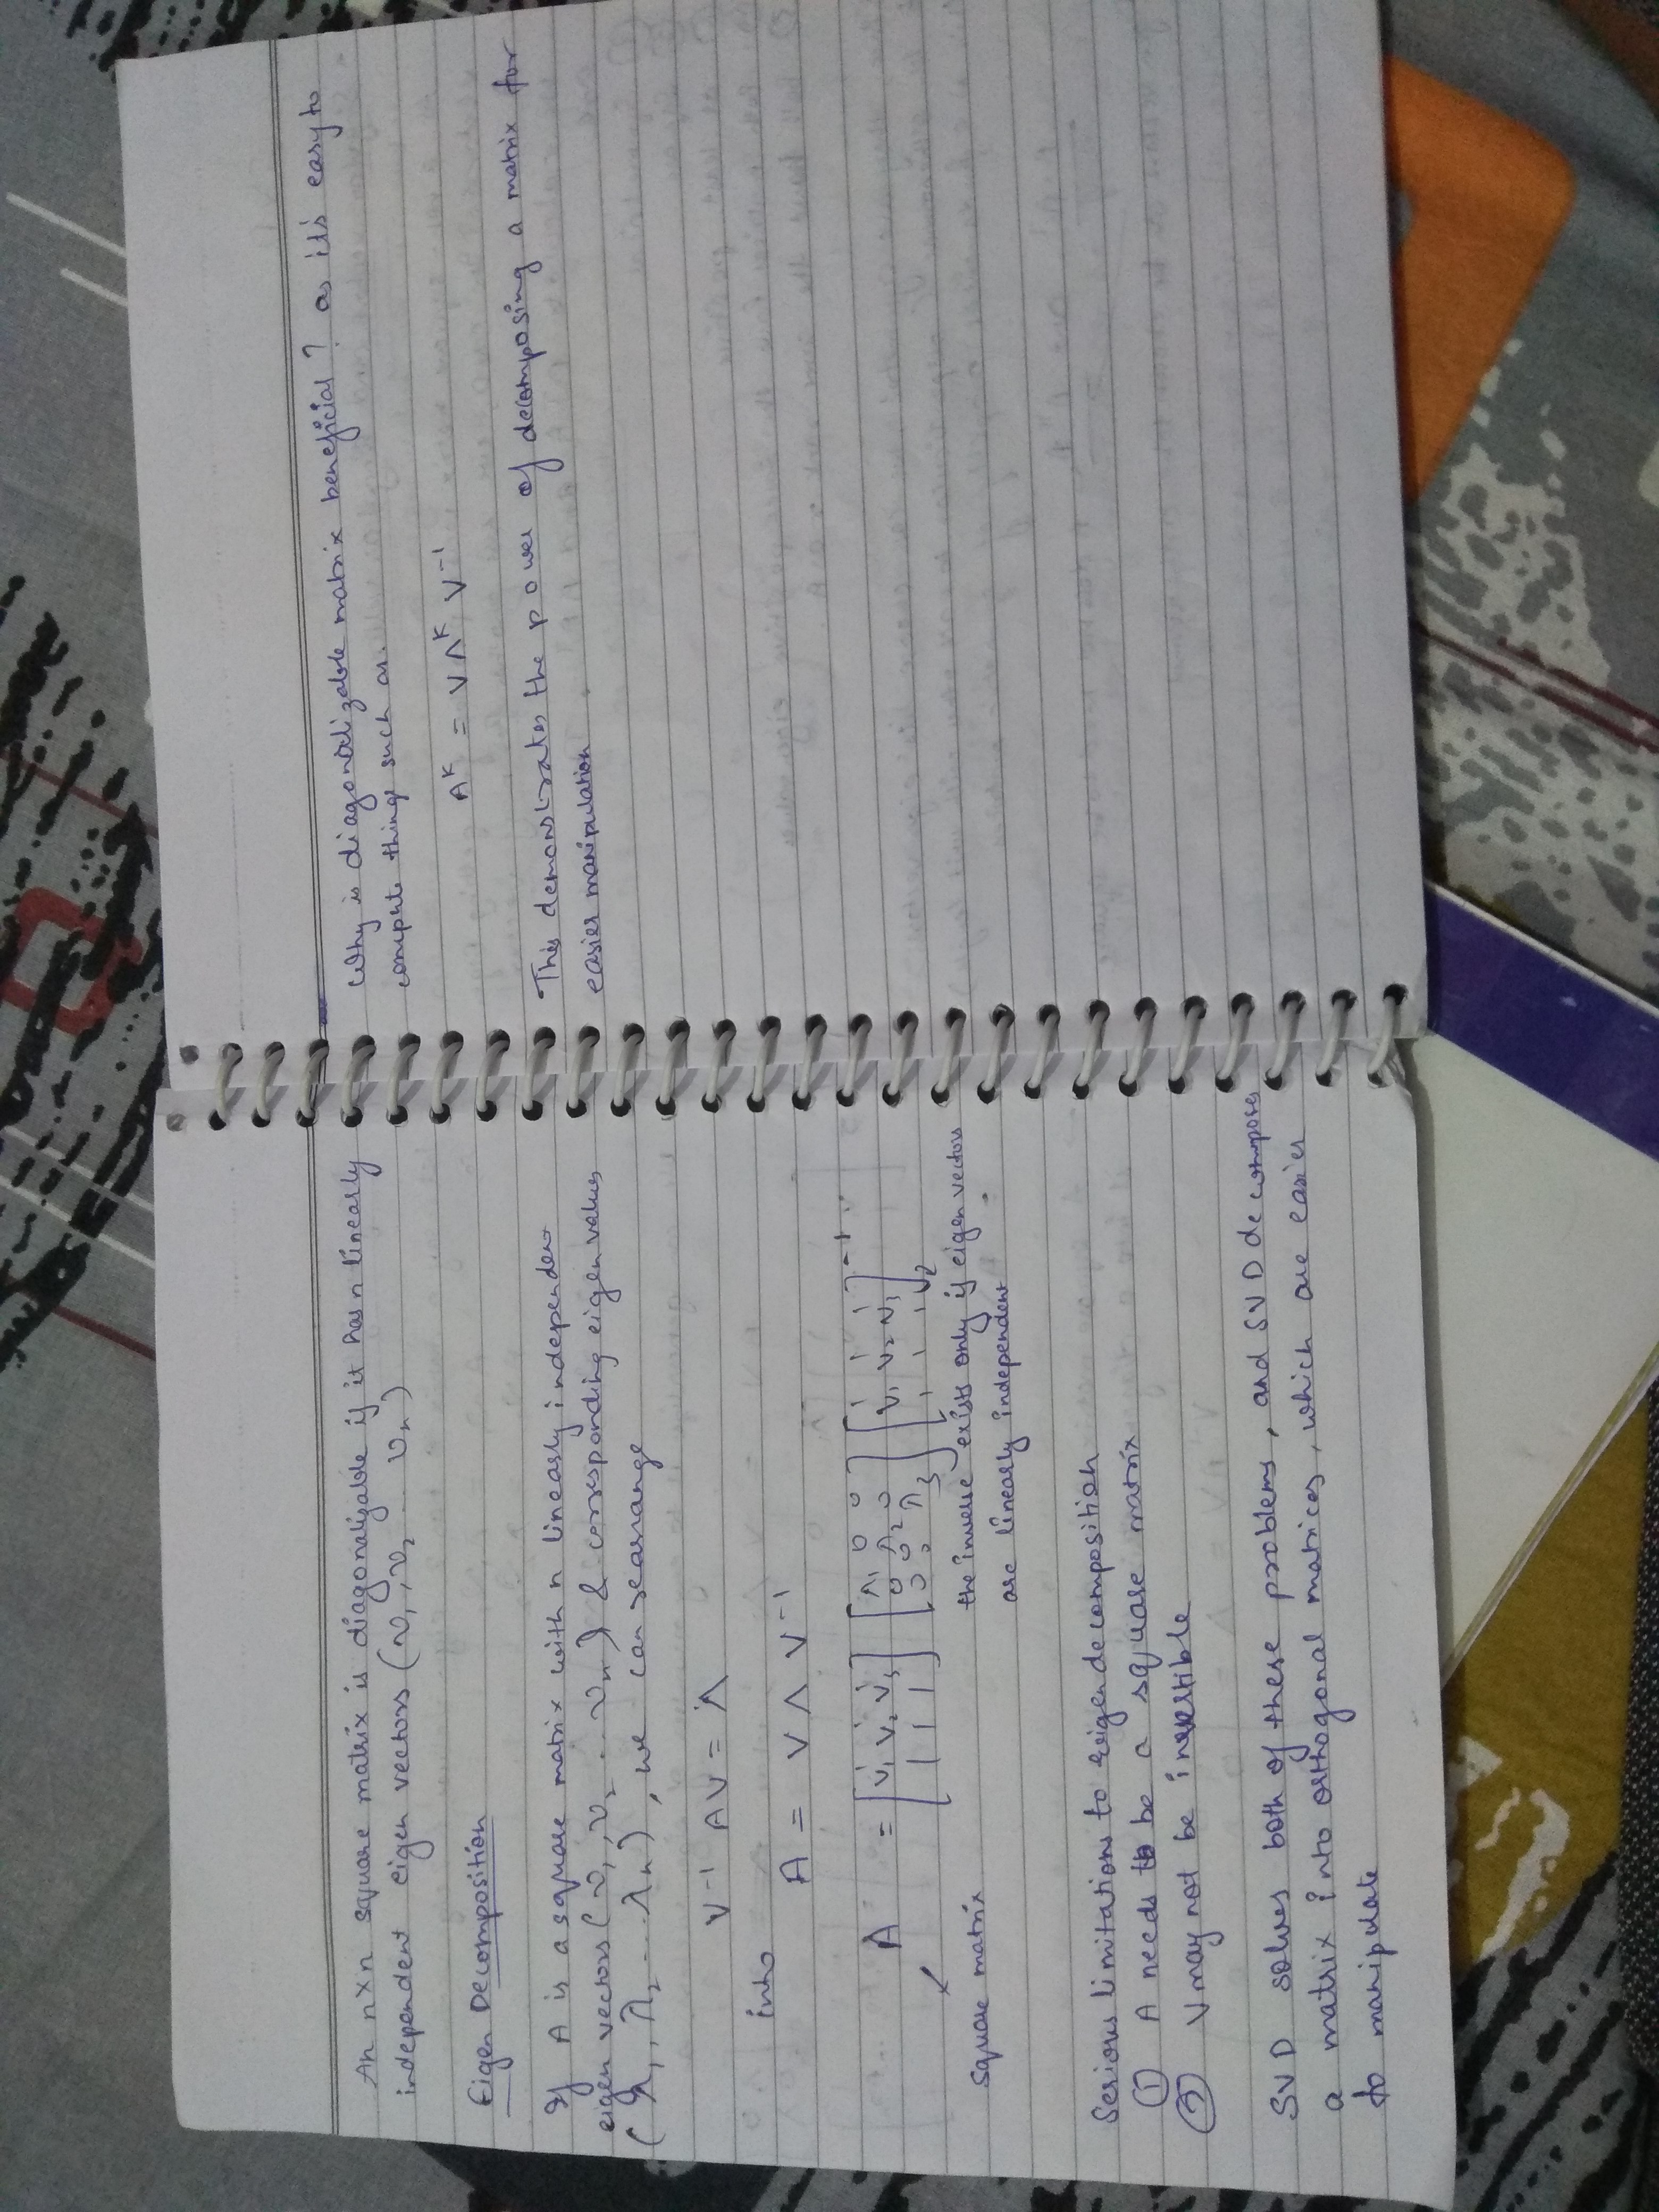 An n×n square matrix is diagonalizable if it has n linearly
independent eigen vectors (v₁, v₂ ... vₙ)
Eigen Decomposition
If A is a square matrix with n linearly independen
eigen vectors (v₁, v₂ ... vₙ) & corresponding eigen values
(λ₁, λ₂ ... λₙ), we can rearrange
V⁻¹ A V = Λ
into
A = V Λ V⁻¹
A = [v₁ v₂ v₃] [λ₁ 0 0
0 λ₂ 0
0 0 λ₃] [v₁ v₂ v₃]⁻¹
Square matrix
the inverse exists only if eigen vectors
are linearly independent
Serious limitations to eigen decomposition
① A needs to be a square matrix
② V may not be invertible
SVD solves both of these problems, and SVD decomposes
a matrix into orthogonal matrices, which are easier
to manipulate
Why is diagonalizable matrix beneficial? as it's easy to
compute things such as.
Aᴷ = V Λᴷ V⁻¹
This demonstrates the power of decomposing a matrix for
easier manipulation